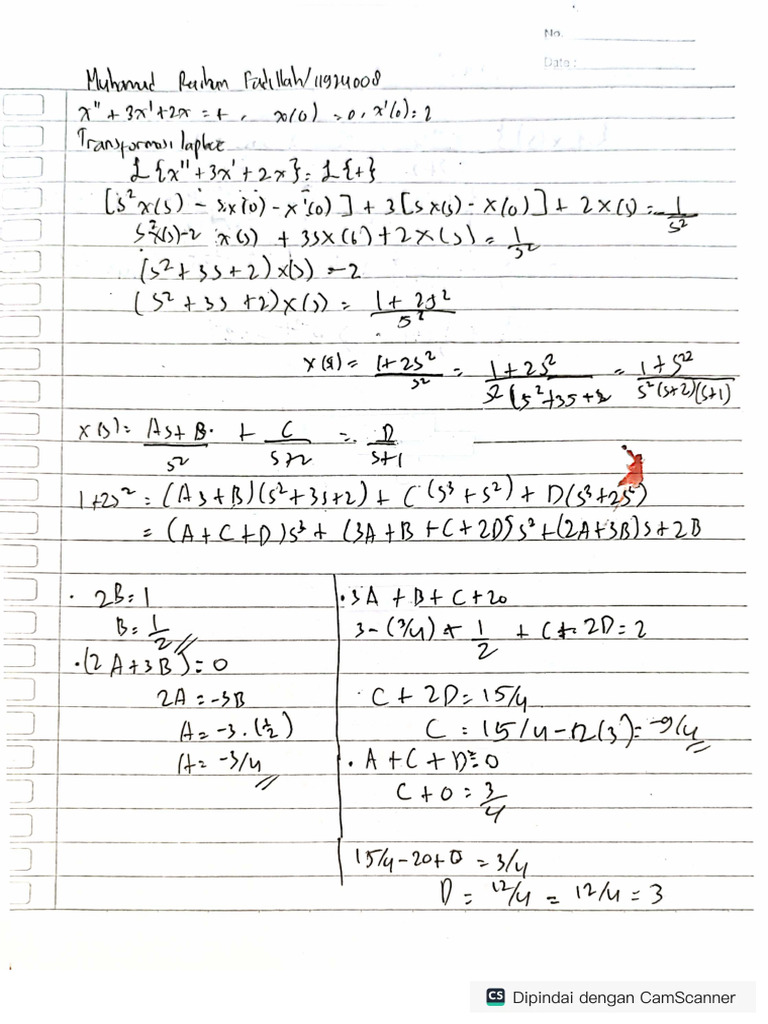 No.
Date:
Muhamad Raihan Fadillah/11924008
x'' + 3x' + 2x = t, x(0) = 0, x'(0) = 2
Transformasi laplace
L{x'' + 3x' + 2x} = L{t}
[s²x(s) - sx(0) - x'(0)] + 3[sx(s) - x(0)] + 2x(s) = 1/s²
s²x(s) - 2 x(s) + 3sx(s) + 2x(s) = 1/s²
(s² + 3s + 2)x(s) - 2
(s² + 3s + 2)x(s) = 1 + 2s²/s²
x(s) = 1 + 2s²/s² = 1 + 2s²/s²(s² + 3s + 2 = 1 + s²²/s²(s+2)(s+1)
x(s) = As + B/s² + C/s+2 = D/s+1
1 + 2s² = (As + B)(s² + 3s + 2) + C(s³ + s²) + D(s³ + 2s²)
= (A + C + D)s³ + (3A + B + C + 2D)s² + (2A + 3B)s + 2B
· 2B = 1
B = 1/2
· (2A + 3B) = 0
2A = -3B
A = -3 · (1/2)
A = -3/4
· 3A + B + C + 2D
3 - (3/4) + 1/2 + C + 2D = 2
· C + 2D = 15/4
C = 15/4 - 12(3) = -9/4
· A + C + D = 0
C + D = 3/4
15/4 - 2D + D = 3/4
D = 12/4 = 12/4 = 3
CS Dipindai dengan CamScanner